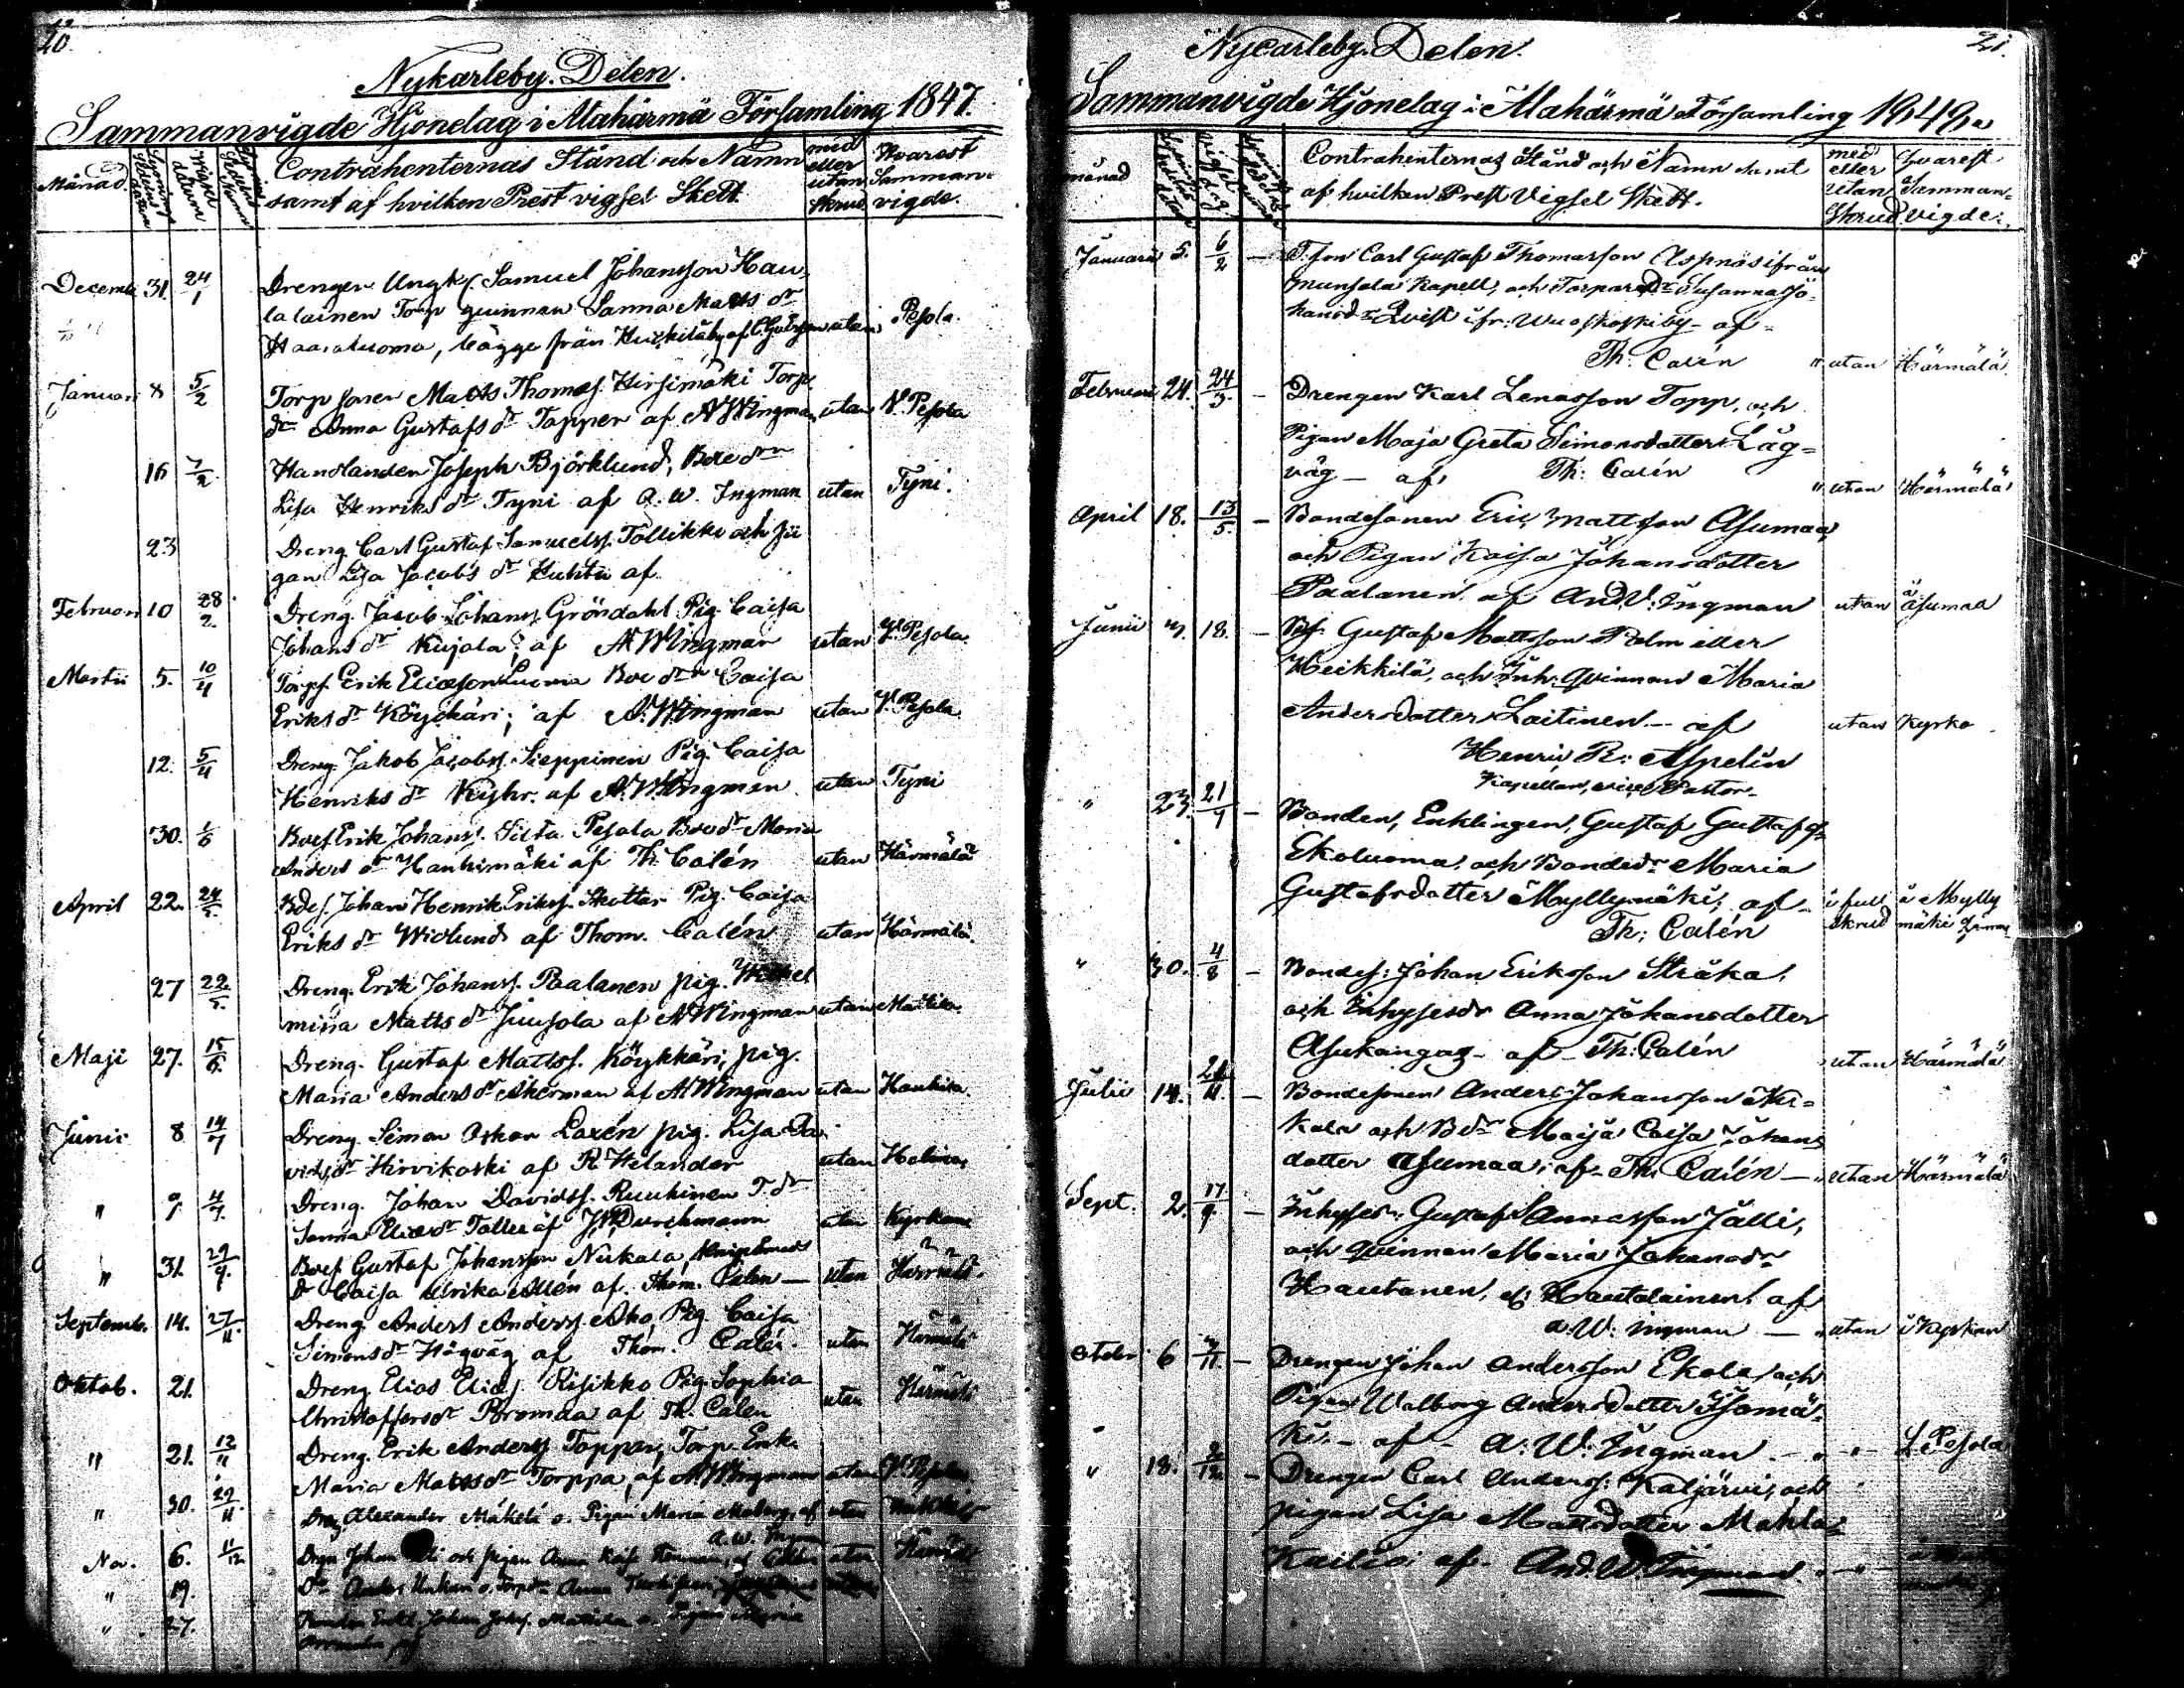 20.
Nykarleby. Delen.
Sammanvigde Hjonelag i Alahärmä Församling 1847.
Månad
Contrahenternas Stånd och Namn
samt af hvilken Prest vigsel Skett.
med eller utan Skrud
Hvarest Sammanvigde.
Decemb 31. 24/1 Drengen Ungk. Samuel Johansson Hau-
lalainen Torp quinnan Sanna Matts dr
Haaraluoma, bägge från utan Pesola.
Januari 8 5/2 Torp sonen Matts Thomas. Hirsimäki Torp
dr Anna Gustafs dr Topper af AWIngman utan Y. Pesola
16 7/2. Handlanden Joseph Björklund, Bde dr
Lisa Henriks dr Tyni af A. W. Ingman utan Tyni.
23 Dreng Carl Gustaf Samuelss. Tollikko och Pi
gan Lisa Jacobs dr Huhta af
Februari 10 28/2. Dreng. Jacob Johanss. Gröndahl Pig. Caisa
Johans dr Kujala, af AWIngman utan Y. Pesola.
Martii 5. 10/4 Torps. Erik Eliasson Luoma Bde dr Caisa
Eriks dr Köyckäri; af A. WIngman utan Y. Pesola
12. 5/4 Dreng Jakob Jacobss. Sieppinen Pig. Caisa
Henriks dr af A. W. Ingman utan Tyni
30. 1/6 Bdes. Erik Johans. Pesola Bde dr Maria
Anders dr Hanhimäki af Th. Calén utan Härmälä
April 22. 24/5. Bdes. Johan Henrik Erikss. Skottar Pig. Caisa
Eriks dr Widlund af Thom. Calén utan Härmälä.
27 22/5. Dreng. Erik Johanss. Paalanen pig. Wilhel
mina Matts dr Juusola af AWIngman utan Mattila.
Maji 27. 15/6. Dreng. Gustaf Mattss. Köykkäri; pig.
Maria Anders dr Åkerman af AWIngman utan Hanhila.
Junii 8 14/7 Dreng. Simon Oskar Laxén pig. Lisa Da-
vids dr Hirvikoski af R. Helander utan
" 9 4/7. Dreng. Johan Davidss. Ruuhinen T. dr
Sanna Elias dr af J. W. Durchmann utan Kyrkan
" 31. 29/9. Bdes Gustaf Johansson Nukala,
dr Caisa Ulrika Allén af Thom. Calén — utan Härmälä.
Septemb. 14. 27/11. Dreng Anders Anderss. Aho Pig Caisa
Simons dr Högväg af Thom. Calén. utan Härmälä
Oktob. 21. Dreng Elias Elias. Risikko Pig. Sophia
Christoffers dr Poromaa af Th. Calén utan Härmälä
" 21. 12/11 Dreng. Erik Anderss Topper, Torp. Enk.
Maria Matts dr Torppa, af AWIngman utan Y. Pesola
" 30. 29/11. Dreng Alexander Mäkelä o. Pigan Maria af utan
A. W. Ingman
Nov. 6. 11/12 Drgn Johan och pigan Anna Kajs af Calén utan Härmälä
" 19. Dr Anders o. Torp dr Anna
" 27. Bonden Enkl. Johan Josefs. Mattila o. Pigan Maria
21.
Nycarleby. Delen.
Sammanvigde Hjonelag i Alahärmä Församling 1848.
månad
Contrahenternas Stånd och Namn samt
af hvilken Prest Vigsel Skett.
med eller utan Skrud
hvarest Sammanvigde.
Januari 5. 6/2 — T. son Carl Gustaf Thomasson Aspnäs ifrån
Munsala Kapell, och Torpare Dr Susanna Jo-
hansd r Qvist ifr: Wuoskoskiby — af —
Th. Calén " utan Härmälä.
Februari 24. 24/3. — Drengen Karl Lenasson Topp, och
Pigan Maja Greta Simonsdotter Låg-
väg — af Th: Calén " utan Härmälä
April 18. 13/5. — Bondesonen Eric Mattsson Asumaa
och Pigan Kaisa Johansdotter
Paalanen. af And. V: Ingman utan å Asumaa
Junii 3. 18. — Gustaf Mattsson Palm eller
Heikkilä, och Inh: Qvinnan Maria
Andersdotter Laitinen — af utan Kyrko
Henric R: Aspelin
Kapellan, vice Pastor.
" 23. 21/7 — Bonden, Enklingen, Gustaf Gustafs.
Ekoluoma, och Bondedr Maria
Gustafsdotter Myllymäki, af — i full å Mylly
Th: Calén skrud mäki
" 30. 4/8 — Bondes: Johan Eriksson Stråka,
och Inhysesdr Anna Johansdotter
Asukangas — af — Th: Calén utan Härmälä
Julii 14. 21/11. — Bondesonen Anders Johansson
kala och Bdr Maija Caisa Johans
dotter Asumaa; af — Th. Calén — " utan Härmälä
Sept. 2. 17/9. — Inhyses: Gustaf Annasson Jälli,
och Qvinnan Maria Johansdr
Hautanen, el: Hautalainen. af
A. W: Ingman — " utan i Kyrkan
Octobr 6 3/11. — Drengen Johan Andersson Ekola, och
Pigan Walborg Andersdotter Isomä-
ki. — af — A: W: Ingman — " — " — L. Pesola
" 18. 2/12. — Drengen Carl Anderss: Katjärvi, och
pigan Lisa Mattsdotter Mahla-
Kailiä; af — And. W. Ingman. " — " —